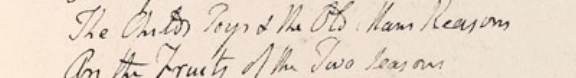 The Childs Toys & the Old Mans Reasons
Are the Fruits of the Two seasons